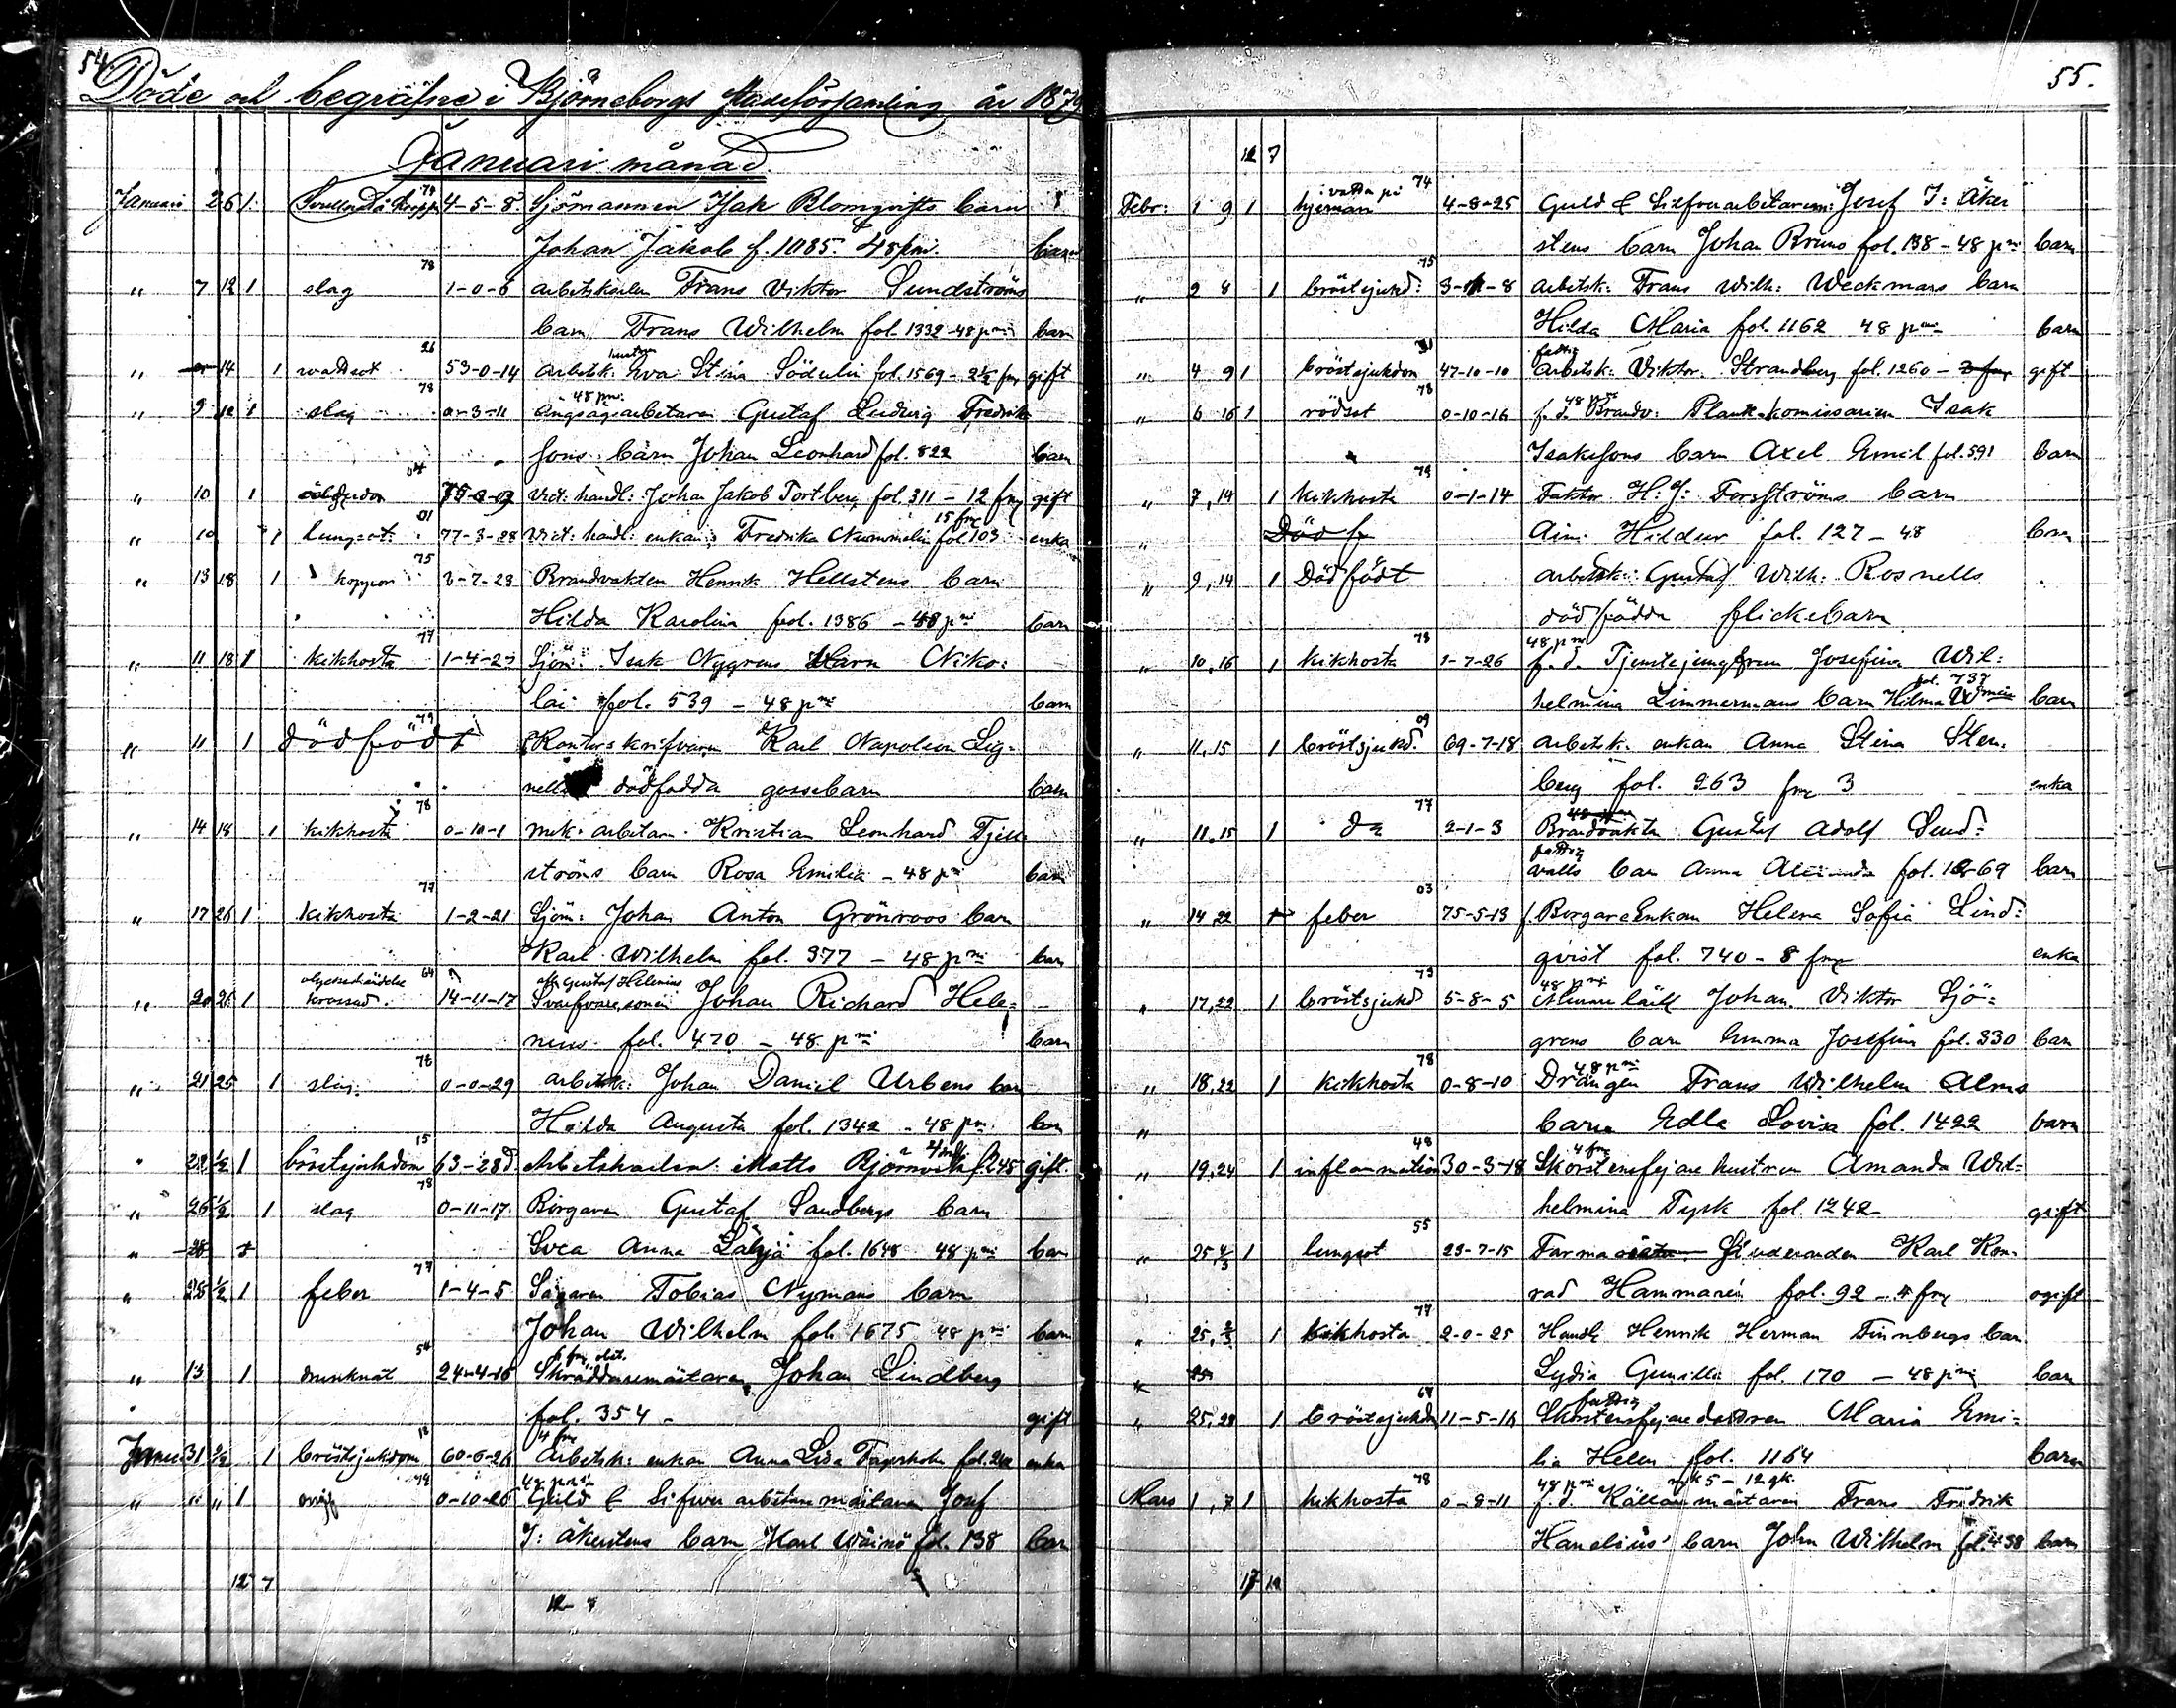 54.
Döde och begrafne i Björneborgs stadsförsamling år 1879
Januari månad.
Januari 2 6 1 Svullnad i kroppen 4-5-8 Sjömannen Isak Blomqvists barn
Johan Jakob f. 1085. 48 pni. barn
78
" 7 12 1 slag 1-0-6 arbetskarlen Frans Viktor Sundströms
barn Frans Wilhelm fol. 1332 - 48 pni barn
26 hustrun
" 14 1 vattsot 53-0-14 Arbetsk. Eva Stina Söderlin fol. 1569 - 2½ fmk gift
78 48 pni.
" 9 12 1 slag 0-3-11 ångsågsarbetaren Gustaf Ludvig Fredriks
sons barn Johan Leonhard fol. 822 barn
04
" 10 1 Vict. handl. Johan Jakob Tortberg fol. 311 - 12 fmk gift
01 15 fmk
" 10 1 lungsot 77-3-28 Vict. handl. enkan Fredrika Nummelin fol. 103 enka
75
" 13 18 1 koppor 3-7-23 Brandvakten Henrik Hellstens barn
Hilda Karolina fol. 1386 - 48 pni barn
77
" 11 18 1 kikhosta 1-4-23 Sjöm: Isak Nygrens barn Niko:
lai fol. 539 - 48 pni barn
79
" 11 1 dödfödt Kontorsskrifvaren Karl Napoleon Lig=
nells dödfödda gossebarn barn
78
" 14 18 1 kikhosta 0-10-1 mek. arbetaren Kristian Leonhard Fjell
ströms barn Rosa Emilia - 48 pni barn
77
" 17 26 1 kikhosta 1-2-21 Sjöm: Johan Anton Grönroos barn
Karl Wilhelm fol. 377 - 48 pni barn
olyckshändelse 64 Gustaf Helenius
" 20 26 1 krossad 14-11-17 Svarfvaresonen Johan Richard Hele=
nius fol. 470 - 48 pni barn
78
" 21 25 1 slag. 0-0-29 arbetsk: Johan Daniel Urbens barn
Hilda Augusta fol. 1342 - 48 pni barn
15
" 1/2 1 bröstsjukdom 63-28d Arbetskarlen Matts Björnvik f. 245 gift.
78
" 26 1/2 1 slag 0-11-17 Borgaren Gustaf Sandbergs barn
" 28 Svea Anna fol. 1648 48 pni barn
77
" 28 1/2 1 feber 1-4-5 Sågaren Tobias Nymans barn
Johan Wilhelm fol. 1675 48 pni barn
54
" 13 1 drunknat 24-4-16 Skräddaremästaren Johan Lindberg
fol. 354 - gift
18 4 fmk
Janu: 31 1 bröstsjukdom 60-6-26 Arbetsk: enkan Anna Lisa Fagerholm fol. enka
78 48 pni
" " " 1 0-10-26 Guld & Silfver arbetare mästaren Josef
I: Åkerstens barn Karl Wäinö fol. 138 barn
12 7
12-7
55.
12 7
i vatten på 74
Febr: 1 9 1 hjernan 4-8-25 Guld & Silfverarbetaren Josef I: Åker
stens barn Johan Bruno fol. 138 - 48 pni barn
75
" 2 8 1 bröstsjukd: 3-11-8 Arbetsk: Frans Wilh: Weckmans barn
Hilda Maria fol. 1162 48 pni barn
31 fattig
" 4 9 1 bröstsjukdom 47-10-10 Arbetsk: Viktor Strandberg fol. 1260 - gift
78 48 pni
" 6 16 1 rödsot 0-10-16 f. d. Brandv: Plank-komissarien Isak
Isakssons barn Axel Emil fol. 591 barn
79
" 7, 14 1 kikhosta 0-1-14 Faktor H: J: Forsströms barn
" Död f Hildur fol. 127 - 48 barn
" 9, 14 1 Dödfödt arbetsk: Gustaf Wilh: Rosnells
dödfödda flickebarn
78 48 pni
" 10, 16 1 kikhosta 1-7-26 f. d. Tjenstejungfrun Josefina Wil:
fol. 737
helmina Limmermans barn Hilma barn
09
" 11, 15 1 bröstsjukd. 69-7-18 arbetsk. enkan Anna Stina Sten=
berg fol. 263 fmk 3 enka
77
" 11, 15 1 do 2-1-3 Brandvakten Gustaf Adolf Sund=
fattig
valls barn Anna fol. 1269 barn
03
" 14, 22 feber 75-5-13 f. Borgareenkan Helena Sofia Lind=
qvist fol. 740 - 8 fmk enka
73 48 pni
" 17, 22 1 bröstsjukd 5-8-5 Johan Viktor Sjö=
grens barn Emma Josefina fol. 330 barn
78 48 pni
" 18, 22 1 kikhosta 0-8-10 Drängen Frans Wilhelm Alms
" barn Edla Lovisa fol. 1422 barn
48 4 fmk
" 19, 24 1 inflammation 30-3-18 Skorstensfejare hustrun Amanda Wil=
helmina Tysk fol. 1242 gift
55
" 25 1 lungsot 23-7-15 Studeranden Karl Kon=
rad Hammarén fol. 92 - 4 fmk ogift
77
" 25, 1 kikhosta 2-0-25 Handl: Henrik Herman Finnbergs barn
Lydia Gunilla fol. 170 - 48 pni barn
67 fattig
" 25, 28 1 bröstsjukdom 11-5-16 Skorstensfejaredottren Maria Emi=
lia Helen fol. 1164 barn
78 48 pni mk 5 - 12 gk.
Mars 1, 7 1 kikhosta 0-8-11 f. d. Källaremästaren Frans Fredrik
Hanelius' barn John Wilhelm fol. 458 barn
17